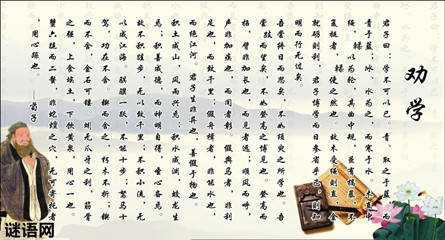 劝学
君子曰：学不可以已。青，取之于蓝，而
青于蓝；冰，水为之，而寒于水。木直中
绳，輮以为轮，其曲中规。虽有槁暴，不
复挺者，輮使之然也。故木受绳则直，金
就砺则利，君子博学而日参省乎己，则知
明而行无过矣。
吾尝终日而思矣，不如须臾之所学也。吾
尝跂而望矣，不如登高之博见也。登高而
招，臂非加长也，而见者远；顺风而呼，
声非加疾也，而闻者彰。假舆马者，非利
足也，而致千里；假舟楫者，非能水也，
而绝江河。君子生非异也，善假于物也。
积土成山，风雨兴焉；积水成渊，蛟龙生
焉；积善成德，而神明自得，圣心备焉。
故不积跬步，无以致千里；不积小流，无
以成江海。骐骥一跃，不能十步；驽马十
驾，功在不舍。锲而舍之，朽木不折；锲
而不舍，金石可镂。蚓无爪牙之利，筋骨
之强，上食埃土，下饮黄泉，用心一也。
蟹六跪而二螯，非蛇鳝之穴，无可寄托者
，用心躁也。 ——荀子
谜语网